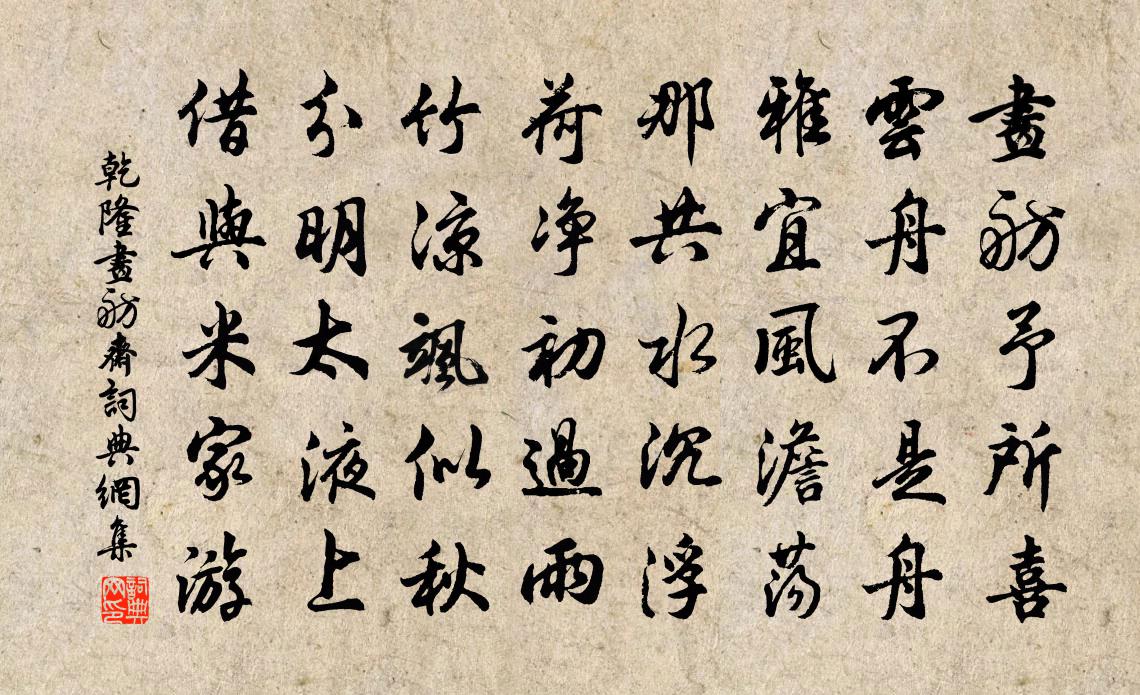 畫舫予所喜
雲舟不是舟
雅宜風澹蕩
那共水沉浮
荷淨初過雨
竹涼颯似秋
分明太液上
借與米家游
乾隆畫舫齋詞典網集
詞典网印